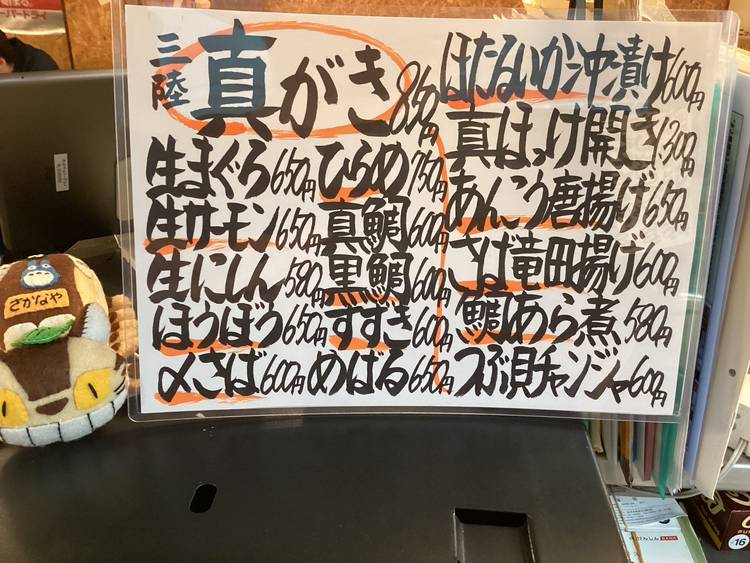 三陸
真がき 850円
生まぐろ 650円
生サーモン 650円
生にしん 580円
ほうぼう 650円
〆さば 600円
ひらめ 750円
真鯛 600円
黒鯛 600円
すずき 600円
めばる 650円
ほたるいか沖漬け 600円
真ほっけ開き 1300円
あんこう唐揚げ 650円
さば竜田揚げ 600円
鯛あら煮 580円
つぶ貝チャンジャ 600円
さかなや